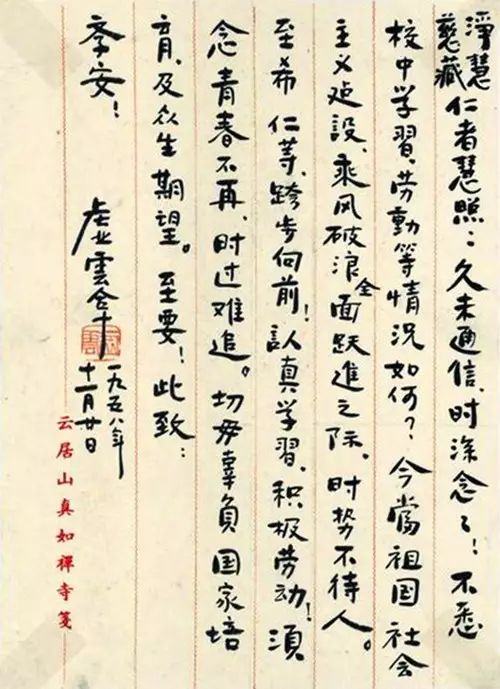 淨慧
藏 仁者慧照：久未通信，时深念々！不悉
校中学習、劳動等情况如何？今當祖国社会
主义建設，乘风破浪全面跃進之际，时势不待人。
至希 仁等，跨步向前！認真学習，积极劳动！須
念青春不再，时过难追。切毋辜負国家培
育，及众生期望。至要！此致：
季安！
虚雲合十
一九五八年
十一月廿日
云居山真如禪寺箋